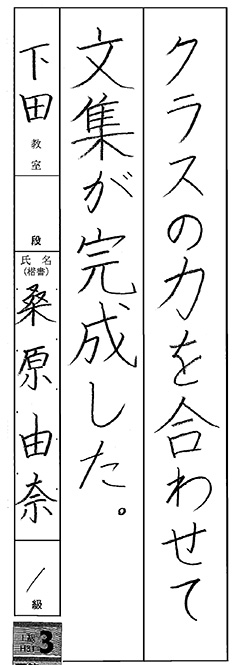 クラスの力を合わせて
文集が完成した。
下田教室
段
氏名(楷書)桑原由奈
1級
H31 3